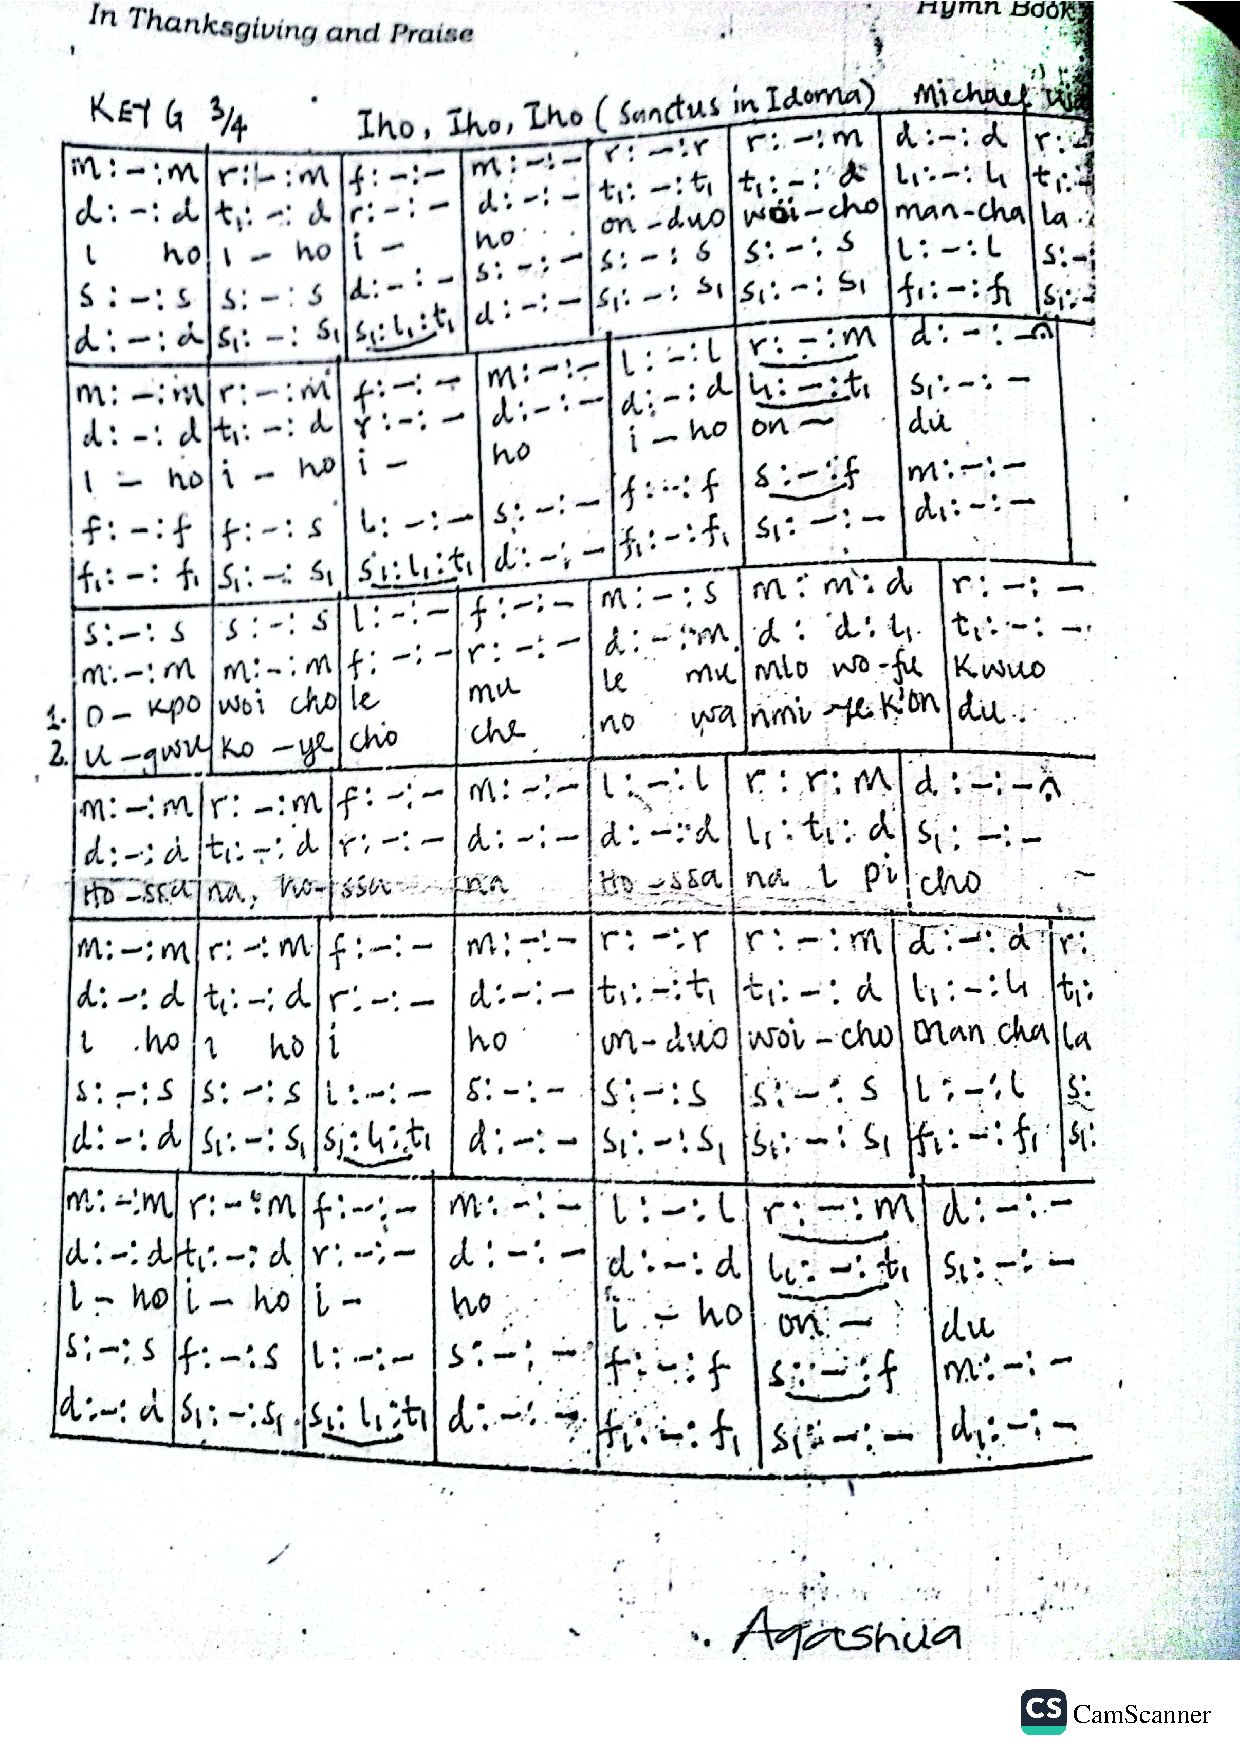 In Thanksgiving and Praise Hymn Book
KEY G 3/4 Iho, Iho, Iho (Sanctus in Idoma) Michael
m:-:m | r:-:m | f:-:- | m:-:- | r:-:r | r:-:m | d:-:d | r:-
d:-:d | t₁:-:d | r:-:- | d:-:- | t₁:-:t₁ | t₁:-:d | l₁:-:l₁ | t₁:-
I ho | I - ho | i - | ho | on-duo | woi-cho | man-cha | la
s:-:s | s:-:s | d:-:- | s:-:- | s:-:s | s:-:s | l:-:l | s:-
d:-:d | s₁:-:s₁ | s₁:l₁:t₁ | d:-:- | s₁:-:s₁ | s₁:-:s₁ | f₁:-:f₁ | s₁:-
m:-:m | r:-:m | f:-:- | m:-:- | l:-:l | r:-:m | d:-:-
d:-:d | t₁:-:d | r:-:- | d:-:- | d:-:d | l₁:-:t₁ | s₁:-:-
I - ho | i - ho | i - | ho | i - ho | on - | du
f:-:f | f:-:s | l:-:- | s:-:- | f:-:f | s:-:f | m:-:-
f₁:-:f₁ | s₁:-:s₁ | s₁:l₁:t₁ | d:-:- | f₁:-:f₁ | s₁:-:- | d₁:-:-
s:-:s | s:-:s | l:-:- | f:-:- | m:-:s | m:m:d | r:-:-
m:-:m | m:-:m | f:-:- | r:-:- | d:-:m | d:d:l₁ | t₁:-:-
1. O-kpo | woi cho | le | mu | le mu | mlo wo-fu | kwuo
2. u-gwu | ko-ye | cho | che | no wa | nmi-ye k'on | du.
m:-:m | r:-:m | f:-:- | m:-:- | l:-:l | r:r:m | d:-:-
d:-:d | t₁:-:d | r:-:- | d:-:- | d:-:d | l₁:t₁:d | s₁:-:-
Ho-ssa | na, ho- | ssa | na | Ho-ssa | na I pi | cho -
m:-:m | r:-:m | f:-:- | m:-:- | r:-:r | r:-:m | d:-:d | r:
d:-:d | t₁:-:d | r:-:- | d:-:- | t₁:-:t₁ | t₁:-:d | l₁:-:l₁ | t₁:
I ho | I ho | i | ho | on-duo | woi-cho | man cha | la
s:-:s | s:-:s | l:-:- | s:-:- | s:-:s | s:-:s | l:-:l | s:
d:-:d | s₁:-:s₁ | s₁:l₁:t₁ | d:-:- | s₁:-:s₁ | s₁:-:s₁ | f₁:-:f₁ | s₁:
m:-:m | r:-:m | f:-:- | m:-:- | l:-:l | r:-:m | d:-:-
d:-:d | t₁:-:d | r:-:- | d:-:- | d:-:d | l₁:-:t₁ | s₁:-:-
I - ho | i - ho | i - | ho | i - ho | on - | du
s:-:s | f:-:s | l:-:- | s:-:- | f:-:f | s:-:f | m:-:-
d:-:d | s₁:-:s₁ | s₁:l₁:t₁ | d:-:- | f₁:-:f₁ | s₁:-:- | d₁:-:-
Agashua
CS CamScanner